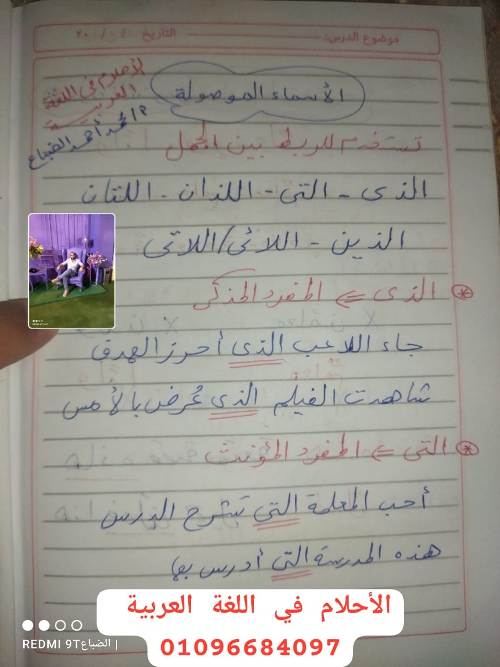 موضوع الدرس: التاريخ / / ٢٠
الأحلام في اللغة
العربية
أ/ محمد أحمد الضباع
الأسماء الموصولة
تستخدم للربط بين الجمل
الذى - التى - اللذان - اللتان
الذين - اللائى/اللاتى
الذى <= المفرد المذكر
جاء اللاعب الذى أحرز الهدف
شاهدت الفيلم الذى عُرض بالأمس
التى <= المفرد المؤنث
أحب المعلمة التى تشرح الدرس
هذه المدرسة التى أدرس بها
الأحلام في اللغة العربية
01096684097
REDMI 9T الضباع |